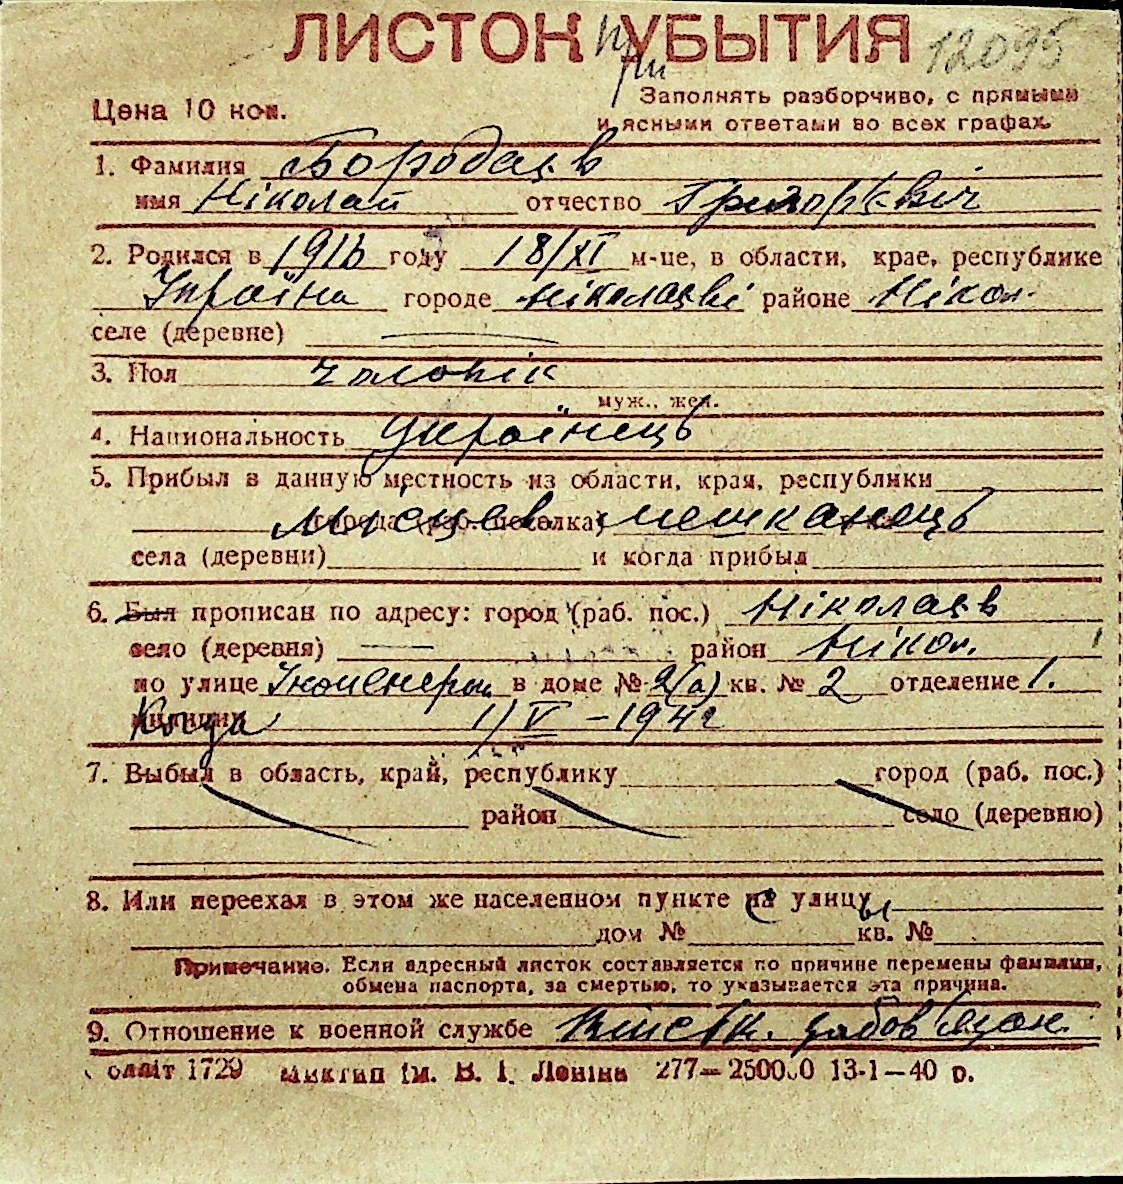 ЛИСТОК при УБЫТИЯ 12095
Цена 10 коп.
Заполнять разборчиво, с прямыми
и ясными ответами во всех графах.
1. Фамилия Бородаєв
имя Ніколай отчество Григорієвіч
2. Родился в 1916 году 18/XI м-це, в области, крае, республике
Україна городе Ніколаєві районе Нікол.
селе (деревне)
3. Пол чоловік
муж., жен.
4. Национальность Українець
5. Прибыл в данную местность из области, края, республики
города (раб. поселка) Місцев. мешканець
села (деревни) и когда прибыл
6. Был прописан по адресу: город (раб. пос.) Ніколаєв
село (деревня) район Нікол.
по улице Інженерн в доме № 2(а) кв. № 2 отделение 1.
милиции Когда 1/V - 194
7. Выбыл в область, край, республику город (раб. пос.)
район село (деревню)
8. Или переехал в этом же населенном пункте на улицу
дом № кв. №
Примечание. Если адресный листок составляется по причине перемены фамилии,
обмена паспорта, за смертью, то указывается эта причина.
9. Отношение к военной службе
оллит 1729 Миктип ім. В. І. Леніна 277—250000 13-1—40 р.